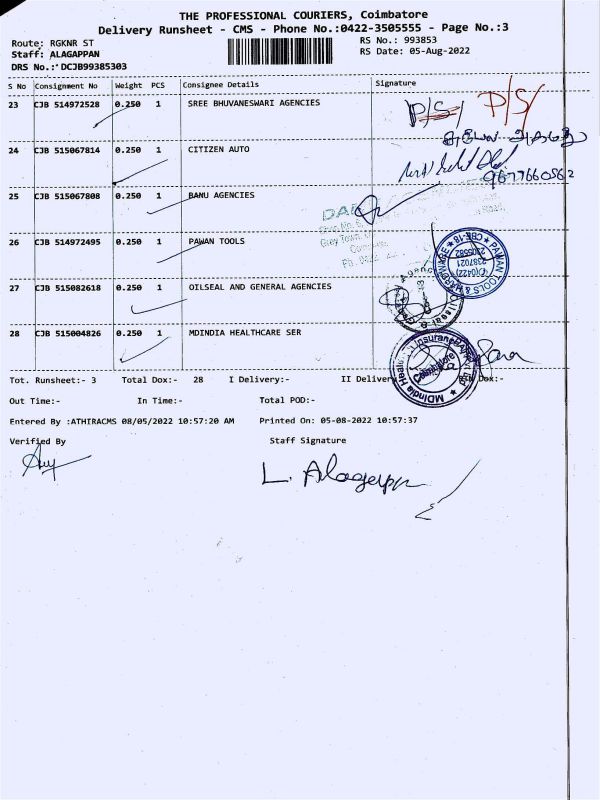 THE PROFESSIONAL COURIERS, Coimbatore
Delivery Runsheet - CMS - Phone No.:0422-3505555 - Page No.:3
Route: RGKNR ST RS No.: 993853
Staff: ALAGAPPAN RS Date: 05-Aug-2022
DRS No.: DCJB99385303
S No Consignment No Weight PCS Consignee Details Signature
23 CJB 514972528 0.250 1 SREE BHUVANESWARI AGENCIES P/S/ P/S/
24 CJB 515067814 0.250 1 CITIZEN AUTO
9677660562
25 CJB 515067808 0.250 1 BANU AGENCIES
26 CJB 514972495 0.250 1 PAWAN TOOLS
PAWAN TOOLS & HARDWARE ★ CBE-18 ★
2387021
27 CJB 515082618 0.250 1 OILSEAL AND GENERAL AGENCIES
28 CJB 515004826 0.250 1 MDINDIA HEALTHCARE SER
Coimbatore
Tot. Runsheet:- 3 Total Dox:- 28 I Delivery:- II Delivery Dox:-
Out Time:- In Time:- Total POD:-
Entered By :ATHIRACMS 08/05/2022 10:57:20 AM Printed On: 05-08-2022 10:57:37
Verified By Staff Signature
L. Alagappan